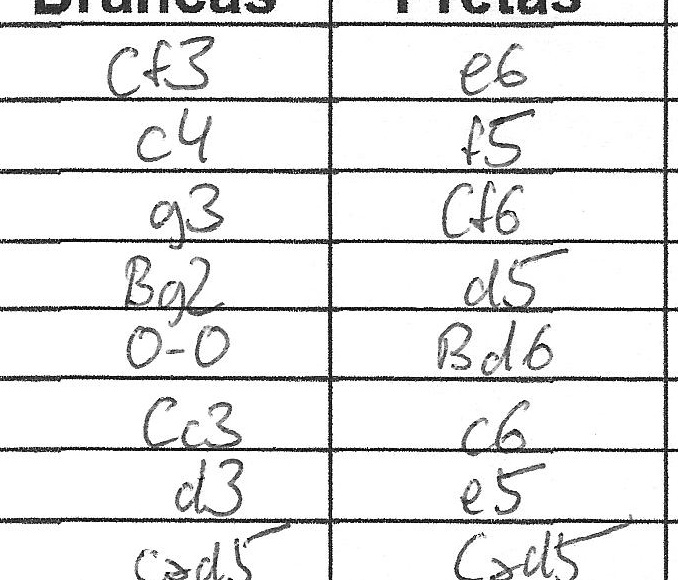 Brancas Pretas
Cf3 e6
c4 f5
g3 Cf6
Bg2 d5
O-O Bd6
Cc3 c6
d3 e5
cxd5 Cxd5